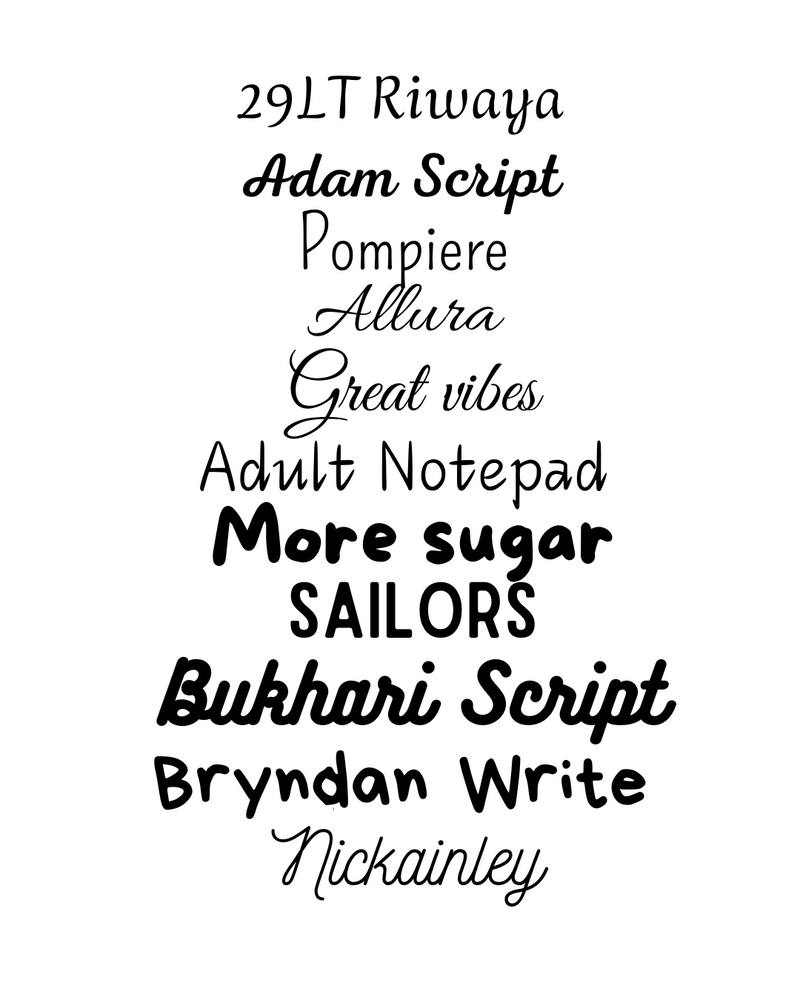 29LT Riwaya
Adam Script
Pompiere
Allura
Great vibes
Adult Notepad
More sugar
SAILORS
Bukhari Script
Bryndan Write
Nickainley